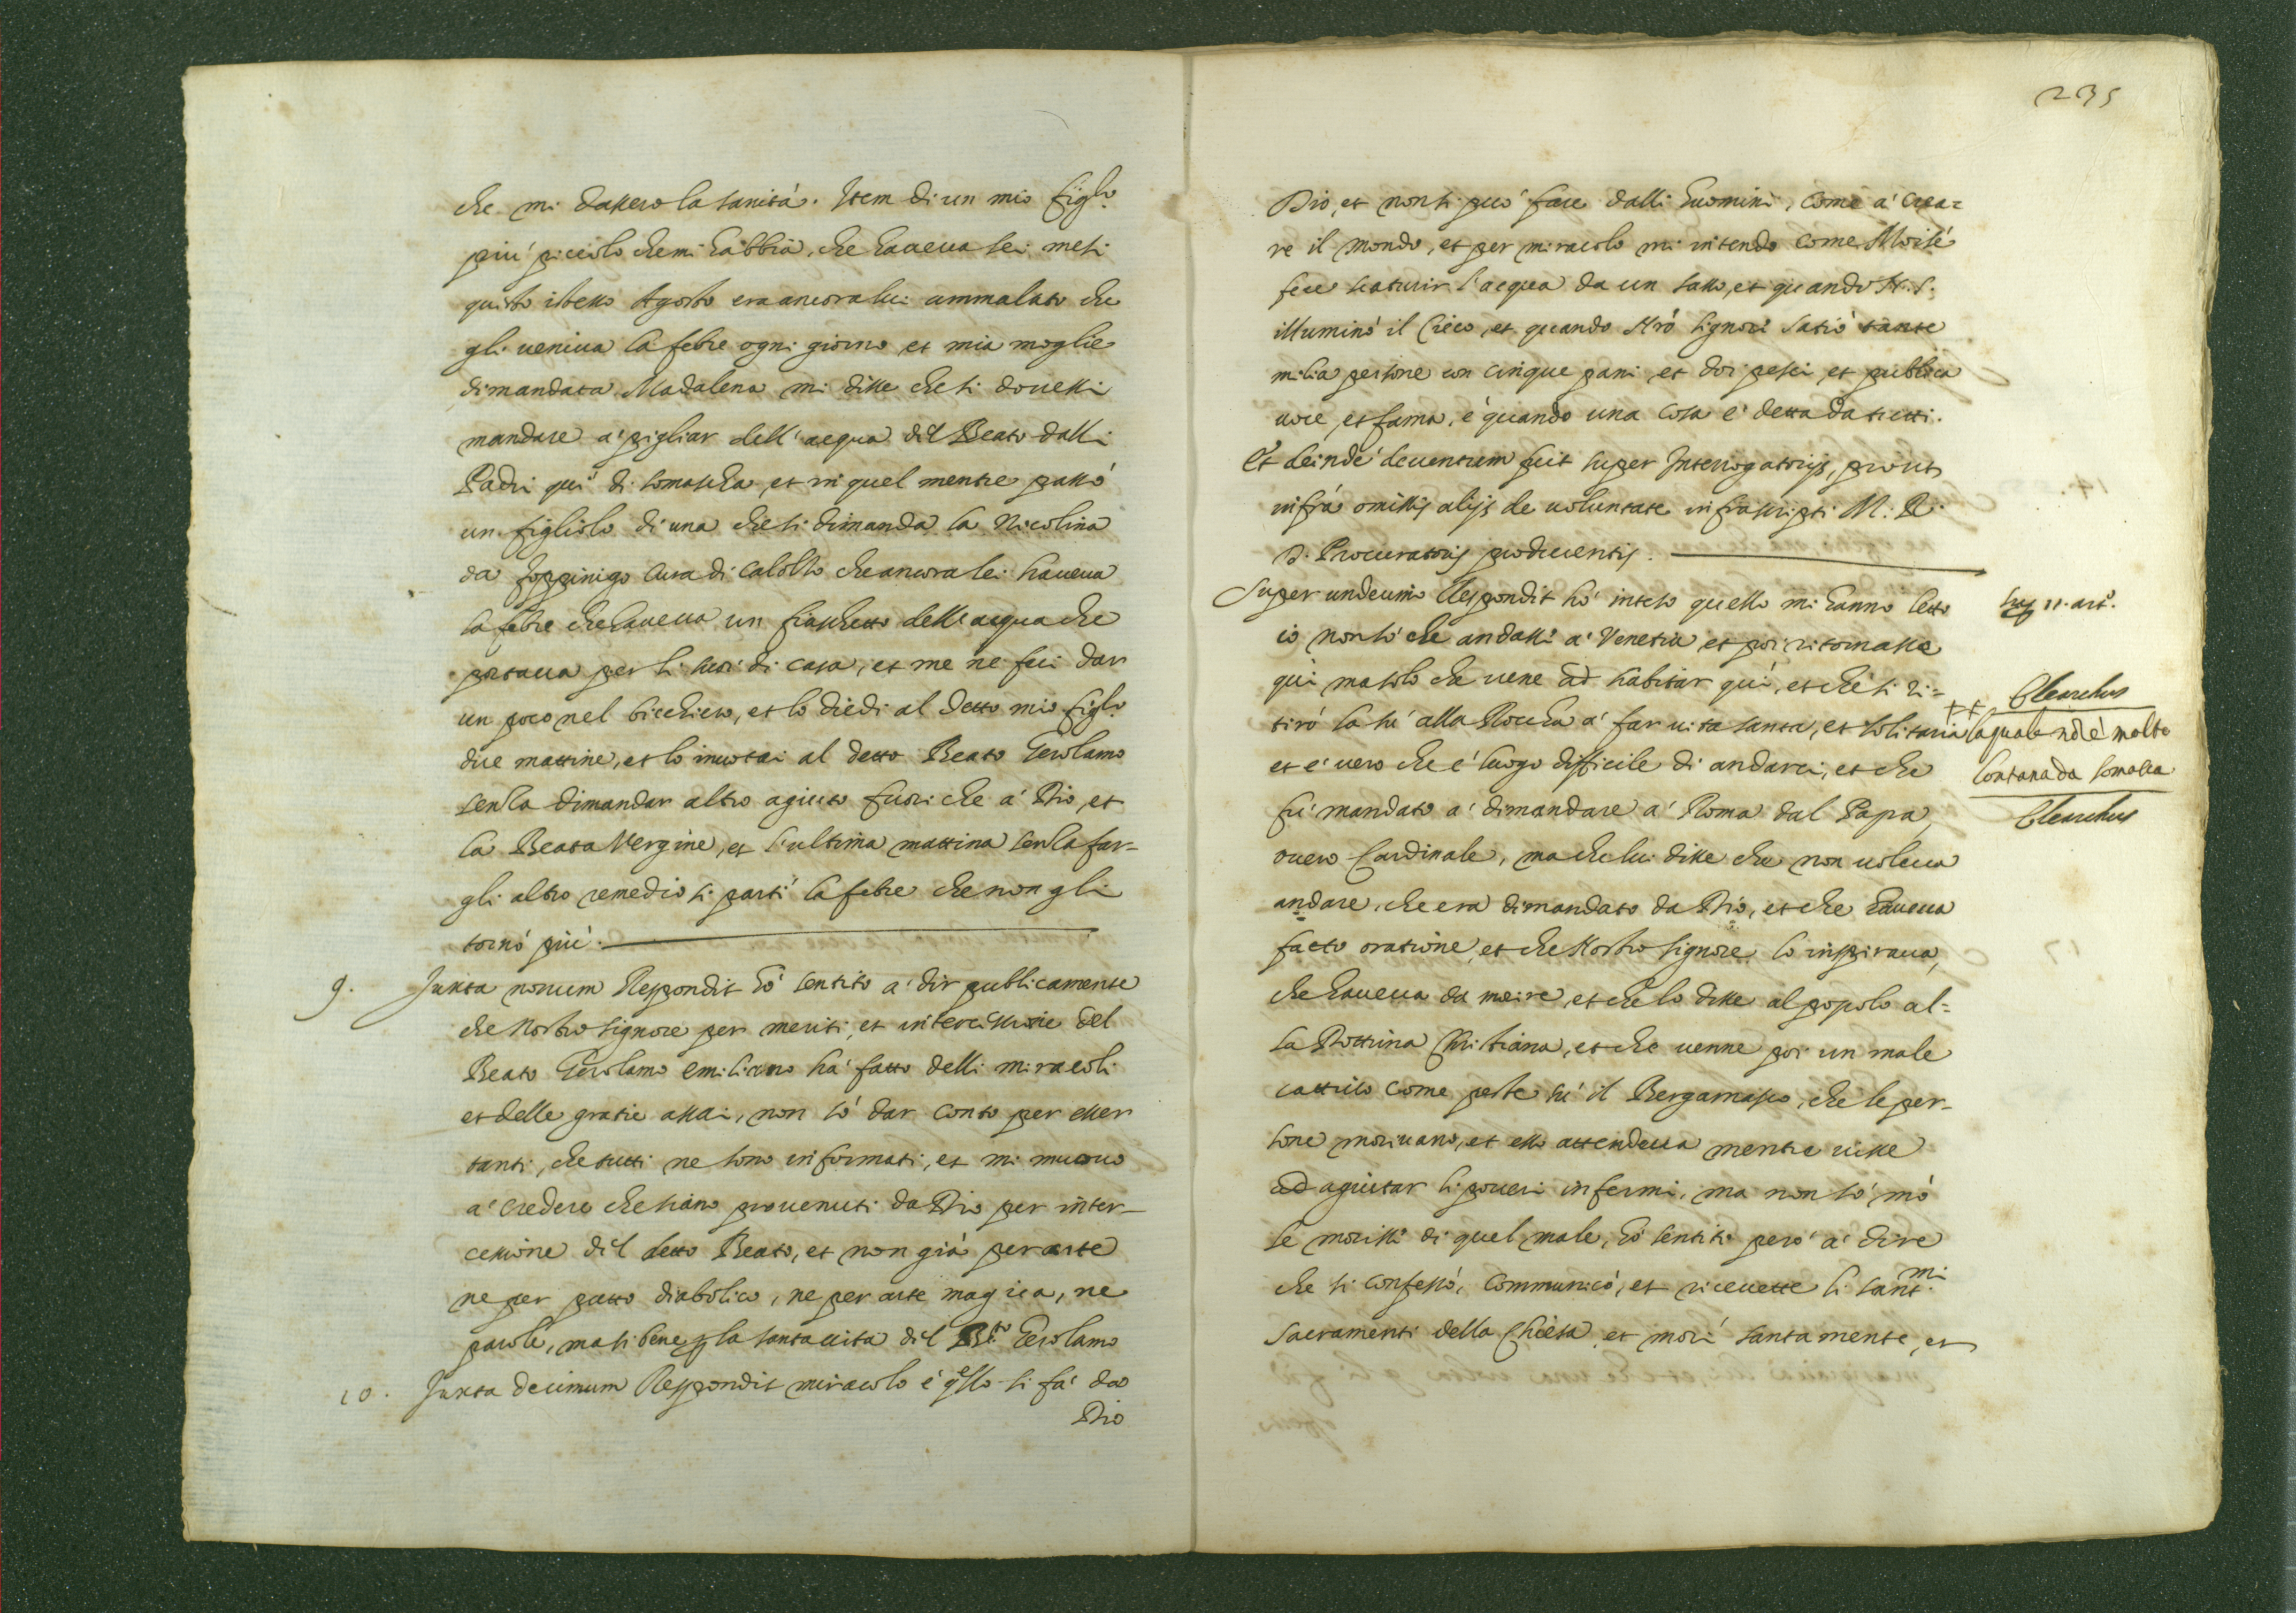 che mi dassero la sanità. Item di un mio figlo
più piccolo che mi habbia, che haveva sei mesi
quisto istesso Agosto era ancora lui ammalato che
gli veniva la febre ogni giorno et mia moglie
dimandata Madalena mi disse che si dovessi
mandare a' pigliar dell'acqua dil Beato dalli
Padri qui di Somascha, et in quel mentre passò
un figliolo di una che si dimanda la Nicolina
da foppinigo cura di Calolso che ancora lei haveva
la febre che haveva un fiaschetto dell'acqua che
portava per li suoi di casa, et me ne feci dar
un poco nel bicchiero, et lo diedi al detto mio figlo
due mattine, et lo invotai al detto Beato Gerolamo
senza dimandar altro agiuto fuori che a' Dio, et
la Beata Vergine, et l'ultima mattina senza far-
gli altro remedio si partì la febre che non gli
tornò più.
9. Juxta nonum Respondit hò sentito a' dir publicamente
che Nostro Signore per meriti, et intercessione del
Beato Gerolamo Emiliano hà fatto delli miracoli
et delle gratie assai, non sò dar conto per esser
tanti, che tutti ne sono informati, et mi muovo
a' credere che siano provenuti da Dio per inter-
cessione dil detto Beato, et non già per arte
ne per patto diabolico, ne per arte magica, ne
parole, ma si bene p la santa vita dil Bto Gerolamo
10. Juxta decimum Respondit miracolo è qello si fà da
Dio
235
Dio, et non si può fare dalli huomini, come a' crea=
re il mondo, et per miracolo mi intendo come Moisè
fece scaturir l'acqua da un sasso, et quando N. S.
illuminò il Cieco, et quando Nrô Signore satiò tante
milia persone con cinque pani, et doi pesci, et publica
voce, et fama, è quando una cosa è detta da tutti.
Et deinde deventum fuit super Interrogatorijs, prout
infra omissis alijs de voluntate infrascripti M. R.
D. Procuratoris producentis.
Super undecimo Respondit hò inteso quello mi hanno letto
io non sò che andassi a' Venetia et poi ritornasse
qui ma solo che vene ad habitar quì, et che si ri=
tirò là sù alla Roccha a' far vita santa, et solitaria ++
et è vero che è luogo difficile di andarci, et che
fù mandato a' dimandare a' Roma dal Papa,
overo Cardinale, ma che lui disse che non voleva
andare, che era dimandato da Dio, et che haveva
facto oratione, et che Nostro Signore lo inspirava,
che haveva da morire, et che lo disse al popolo al=
la Dottrina Christiana, et che venne poi un male
cattivo come peste sù il Bergamasco, che le per-
sone morivano, et esso attendeva mentre visse
ad agiutar li poveri infermi, ma non sò mò
se morissi di quel male, hò sentiti però a' dire
che si confessò, communicò, et ricevette li santmi
Sacramenti della Chiesa, et morì santamente, et
Sup 11. art.
Clearchus
la quale nô è molto
lontana da Somasca
Clearchus